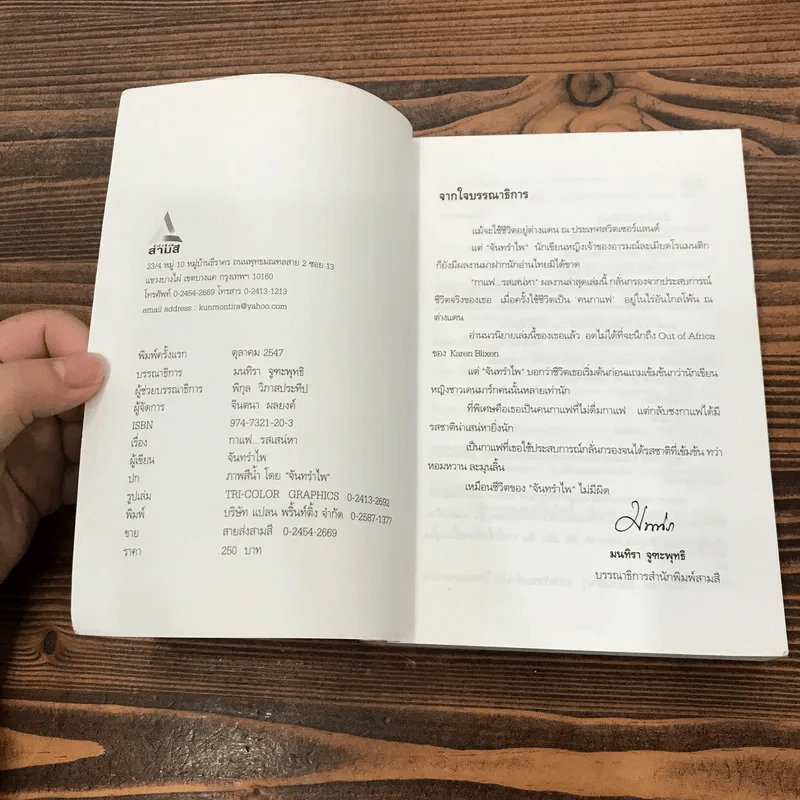 สามสี
23/4 หมู่ 10 หมู่บ้านธีราคร ถนนพุทธมณฑลสาย 2 ซอย 13
แขวงบางไผ่ เขตบางแค กรุงเทพฯ 10160
โทรศัพท์ 0-2454-2669 โทรสาร 0-2413-1213
email address : kunmontira@yahoo.com
พิมพ์ครั้งแรก ตุลาคม 2547
บรรณาธิการ มนทิรา จูฑะพุทธิ
ผู้ช่วยบรรณาธิการ พิกุล วิภาสประทีป
ผู้จัดการ จินตนา ผลยงค์
ISBN 974-7321-20-3
เรื่อง กาแฟ...รสเสน่หา
ผู้เขียน จันทรำไพ
ปก ภาพสีน้ำ โดย "จันทรำไพ"
รูปเล่ม TRI-COLOR GRAPHICS 0-2413-2692
พิมพ์ บริษัท แปลน พริ้นท์ติ้ง จำกัด 0-2587-1377
ขาย สายส่งสามสี 0-2454-2669
ราคา 250 บาท
จากใจบรรณาธิการ
แม้จะใช้ชีวิตอยู่ต่างแดน ณ ประเทศสวิตเซอร์แลนด์
แต่ "จันทรำไพ" นักเขียนหญิงเจ้าของอารมณ์ละเมียดโรแมนติก
ก็ยังมีผลงานมาฝากนักอ่านไทยมิได้ขาด
"กาแฟ...รสเสน่หา" ผลงานล่าสุดเล่มนี้ กลั่นกรองจากประสบการณ์
ชีวิตจริงของเธอ เมื่อครั้งใช้ชีวิตเป็น 'คนกาแฟ' อยู่ในไร่อันไกลโพ้น ณ
ต่างแดน
อ่านนวนิยายเล่มนี้ของเธอแล้ว อดไม่ได้ที่จะนึกถึง Out of Africa
ของ Karen Blixen
แต่ "จันทรำไพ" บอกว่าชีวิตเธอเริ่มต้นก่อนแถมเข้มข้นกว่านักเขียน
หญิงชาวเดนมาร์กคนนั้นหลายเท่านัก
ที่พิเศษคือเธอเป็นคนกาแฟที่ไม่ดื่มกาแฟ แต่กลับชงกาแฟได้มี
รสชาติน่าเสน่หายิ่งนัก
เป็นกาแฟที่เธอใช้ประสบการณ์กลั่นกรองจนได้รสชาติที่เข้มข้น ทว่า
หอมหวาน ละมุนลิ้น
เหมือนชีวิตของ "จันทรำไพ" ไม่มีผิด
มนทิรา จูฑะพุทธิ
บรรณาธิการสำนักพิมพ์สามสี